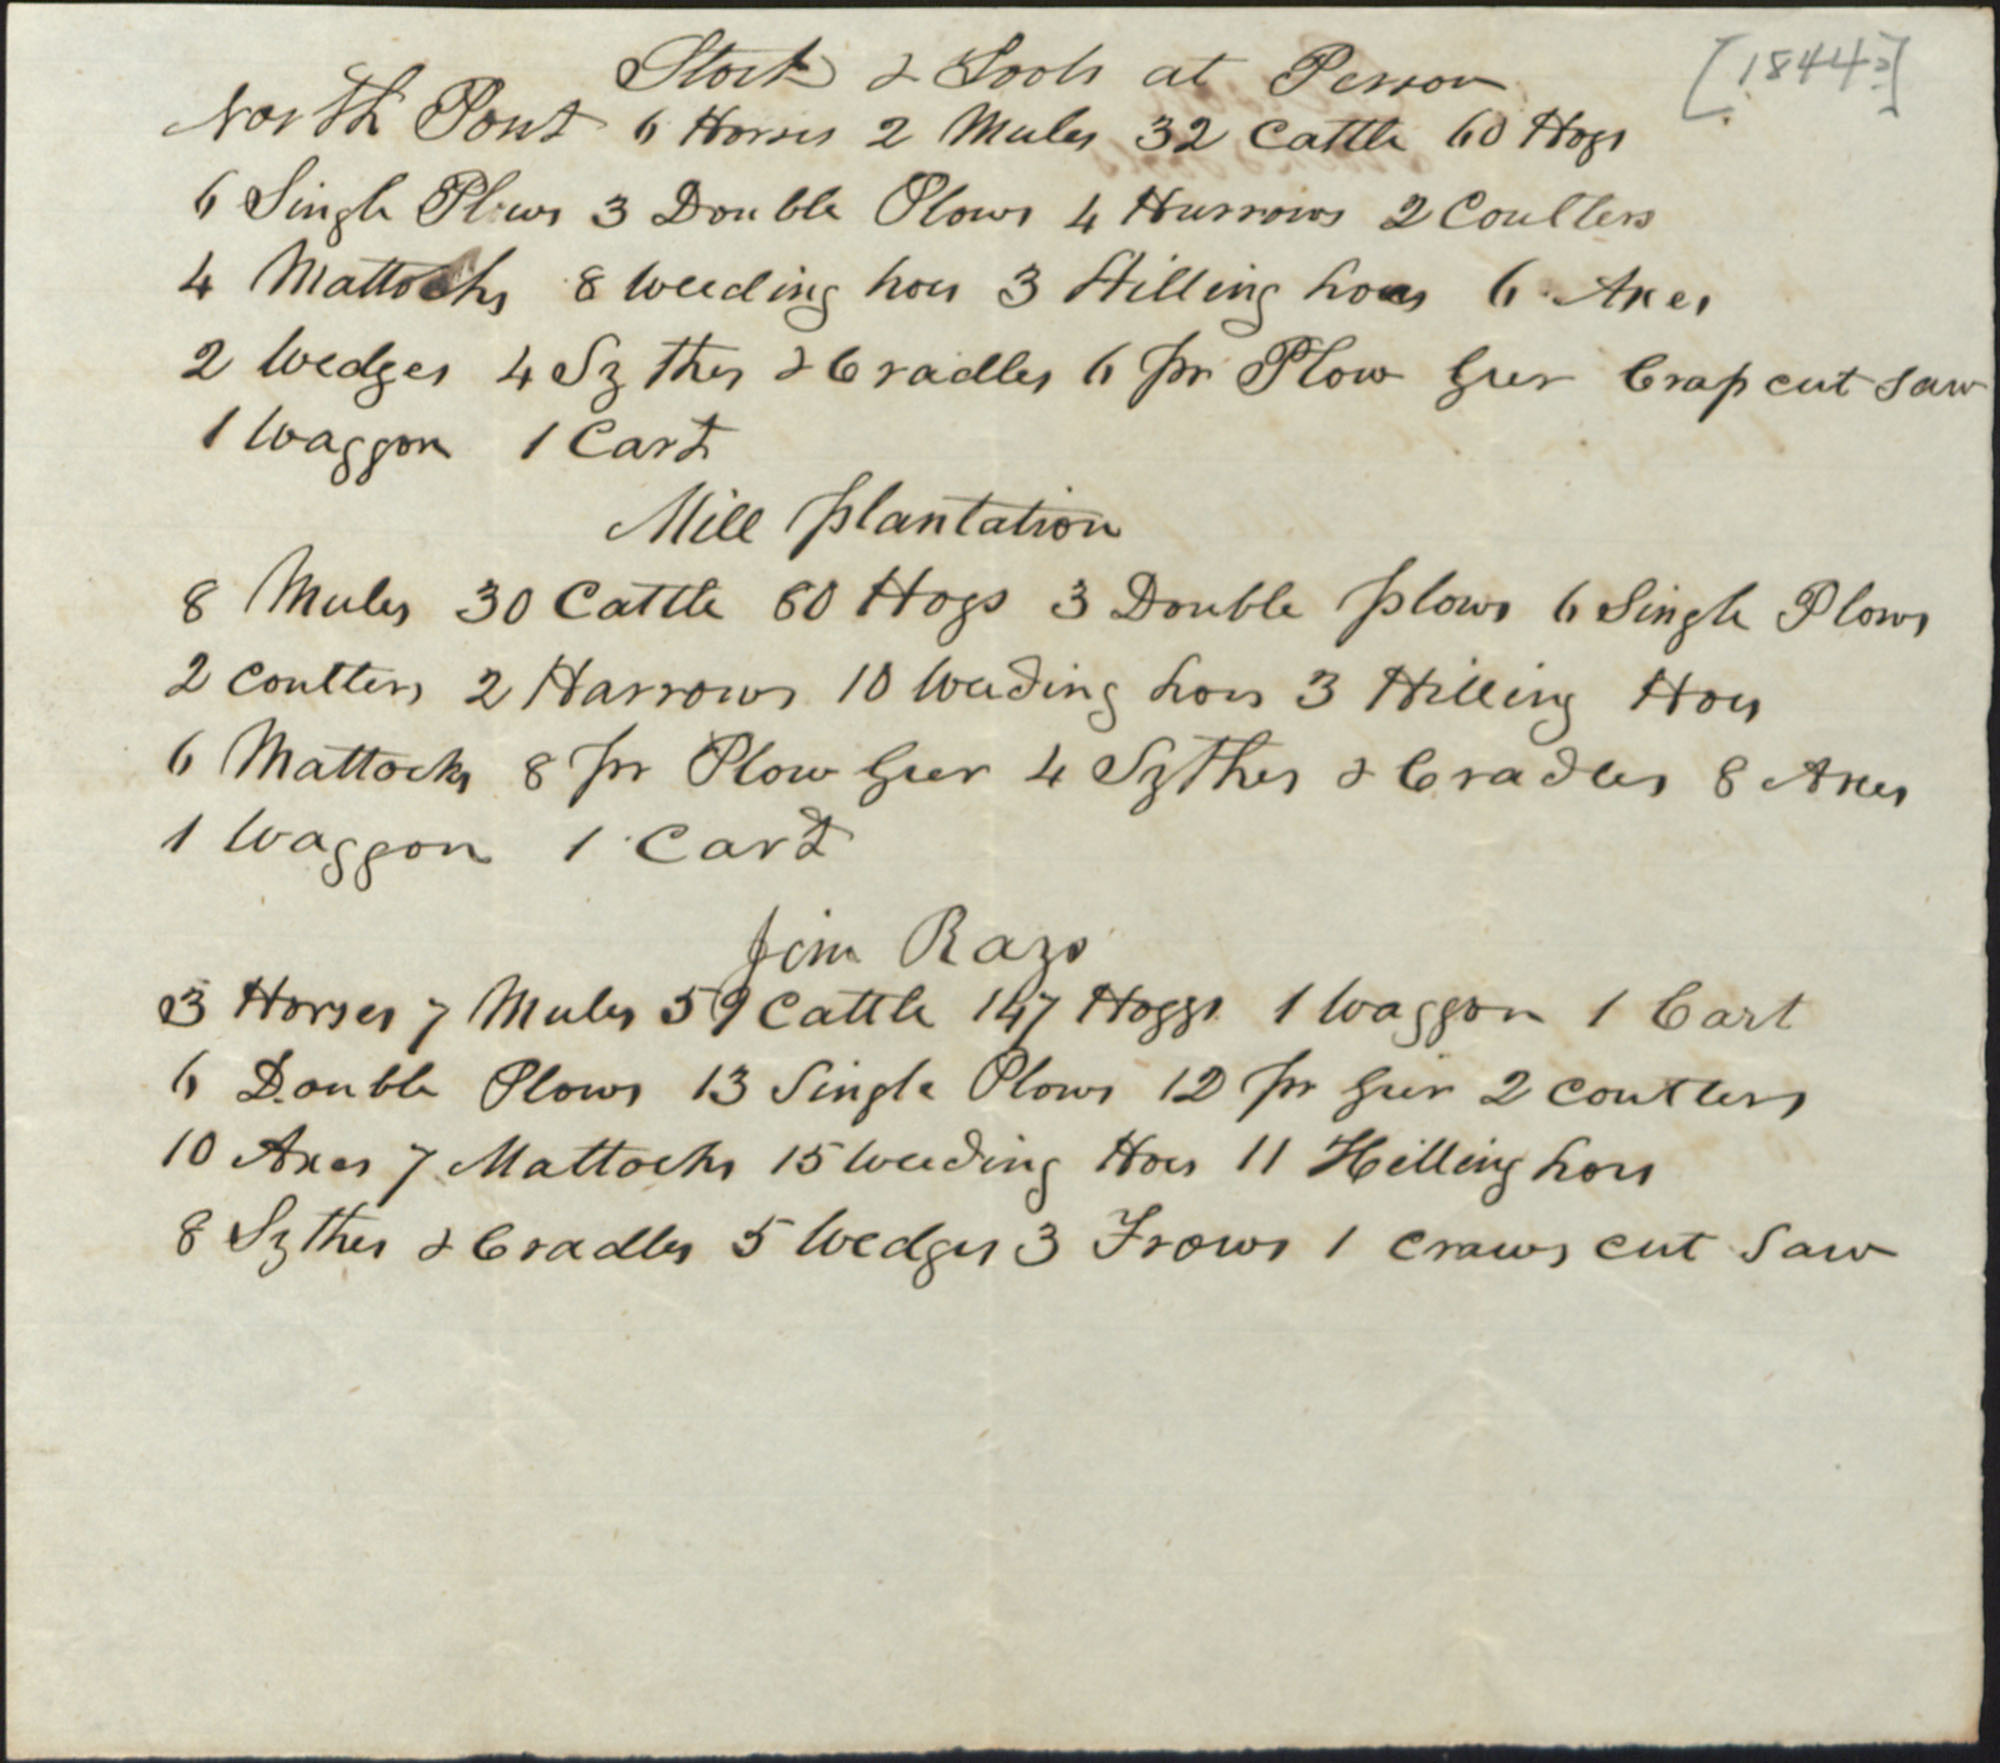 [1844?]
Stock & Tools at Person
North Pont 6 Horses 2 Mules 32 Cattle 60 Hogs
6 Single Plows 3 Double Plows 4 Hurrows 2 Coulters
4 Mattocks 8 weeding hoes 3 Hilling hoes 6 Axes
2 Wedges 4 Sythes & Cradles 6 pr Plow Geer Crap cut saw
1 Waggon 1 Cart
Mill plantation
8 Mules 30 Cattle 80 Hogs 3 Double plows 6 Single Plows
2 Coulters 2 Harrows 10 weeding hoes 3 Hilling Hoes
6 Mattocks 8 pr Plow Geer 4 Sythes & Cradles 8 Axes
1 Waggon 1 Cart
Jim Rays
3 Horses 7 Mules 59 Cattle 147 Hoggs 1 Waggon 1 Cart
6 Double Plows 13 Single Plows 12 pr Geer 2 Coulters
10 Axes 7 Mattocks 15 weeding Hoes 11 Hilling hoes
8 Sythes & Cradles 5 Wedges 3 Frows 1 craws cut Saw